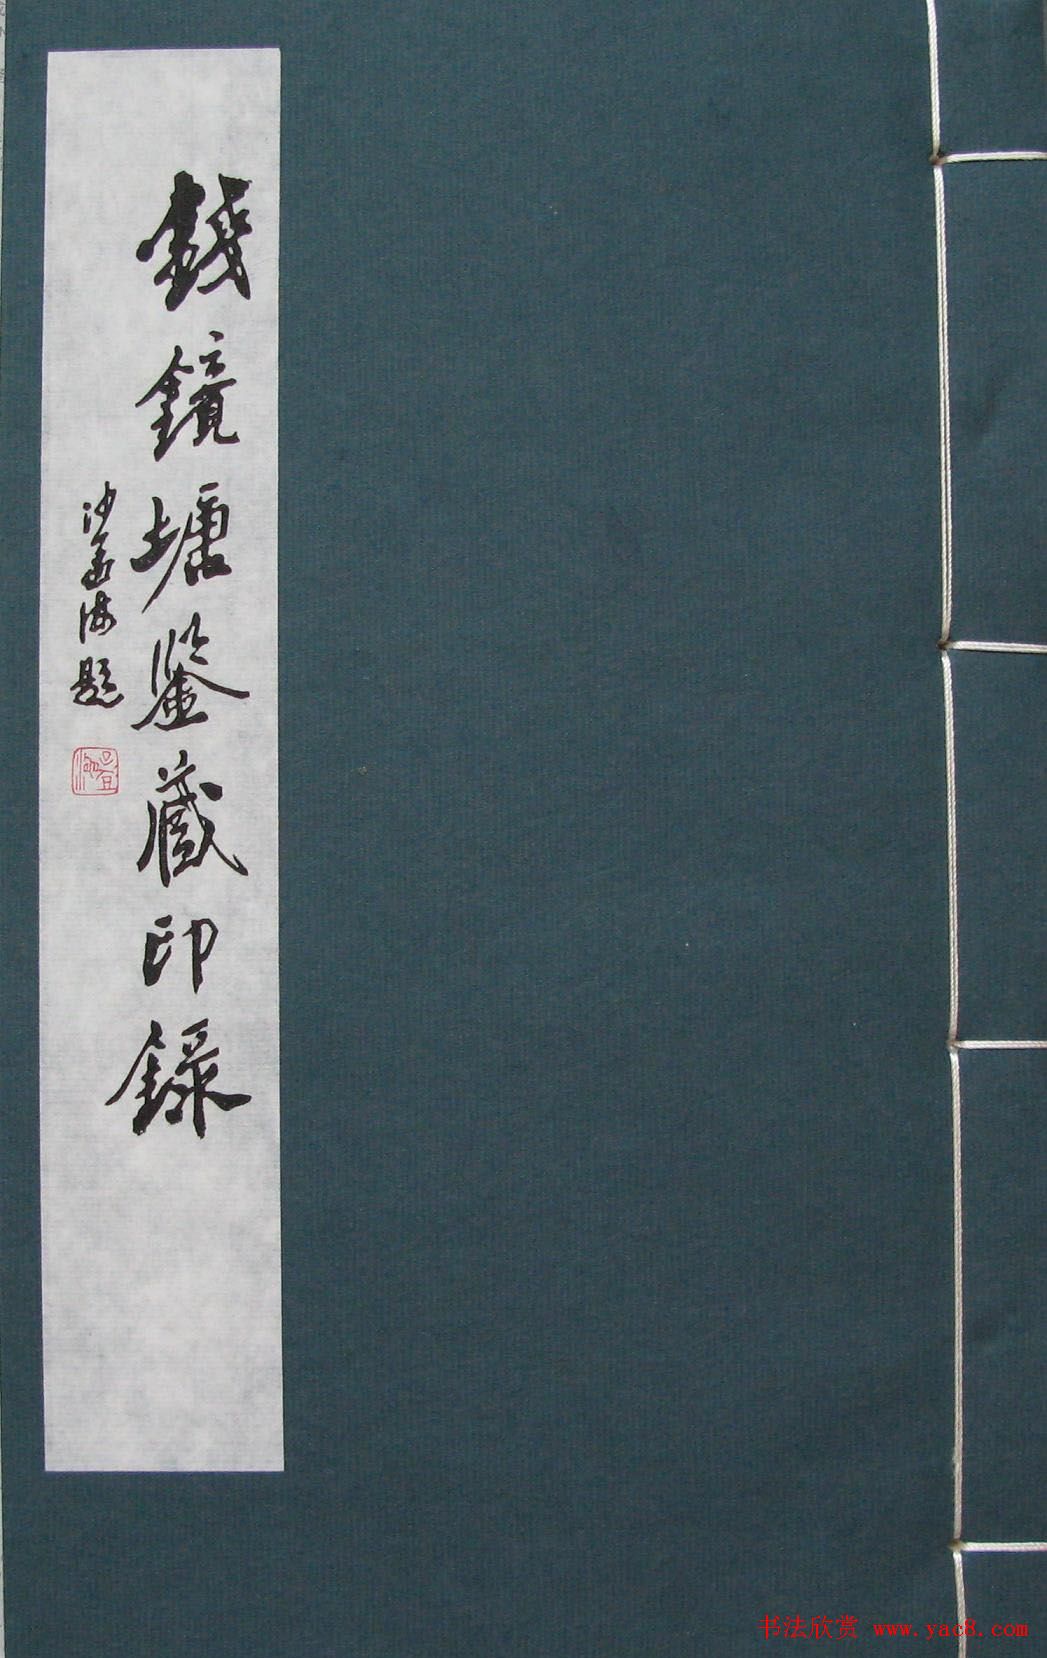 錢鏡塘鑒藏印錄
沙孟海題
书法欣赏 www.yac8.com